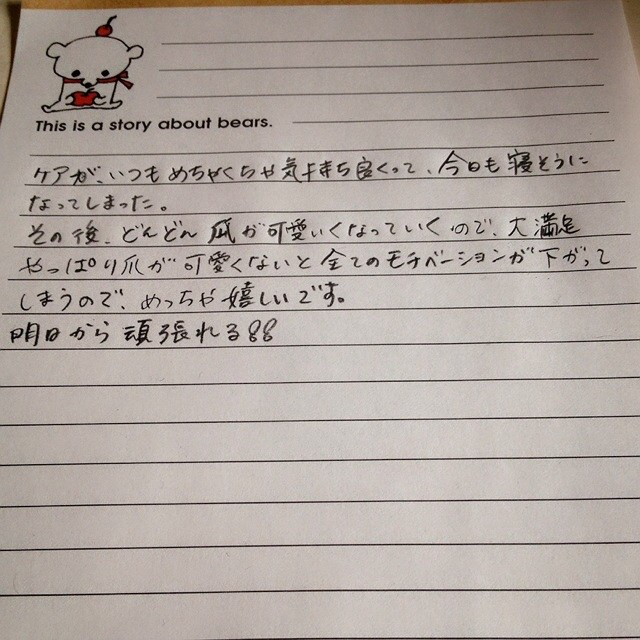 This is a story about bears.
ケアが、いつもめちゃくちゃ気持ち良くって、今日も寝そうに
なってしまった。
その後、どんどん爪が可愛いくなっていくので、大満足
やっぱり爪が可愛くないと全てのモチベーションが下がって
しまうので、めっちゃ嬉しいです。
明日から頑張れる